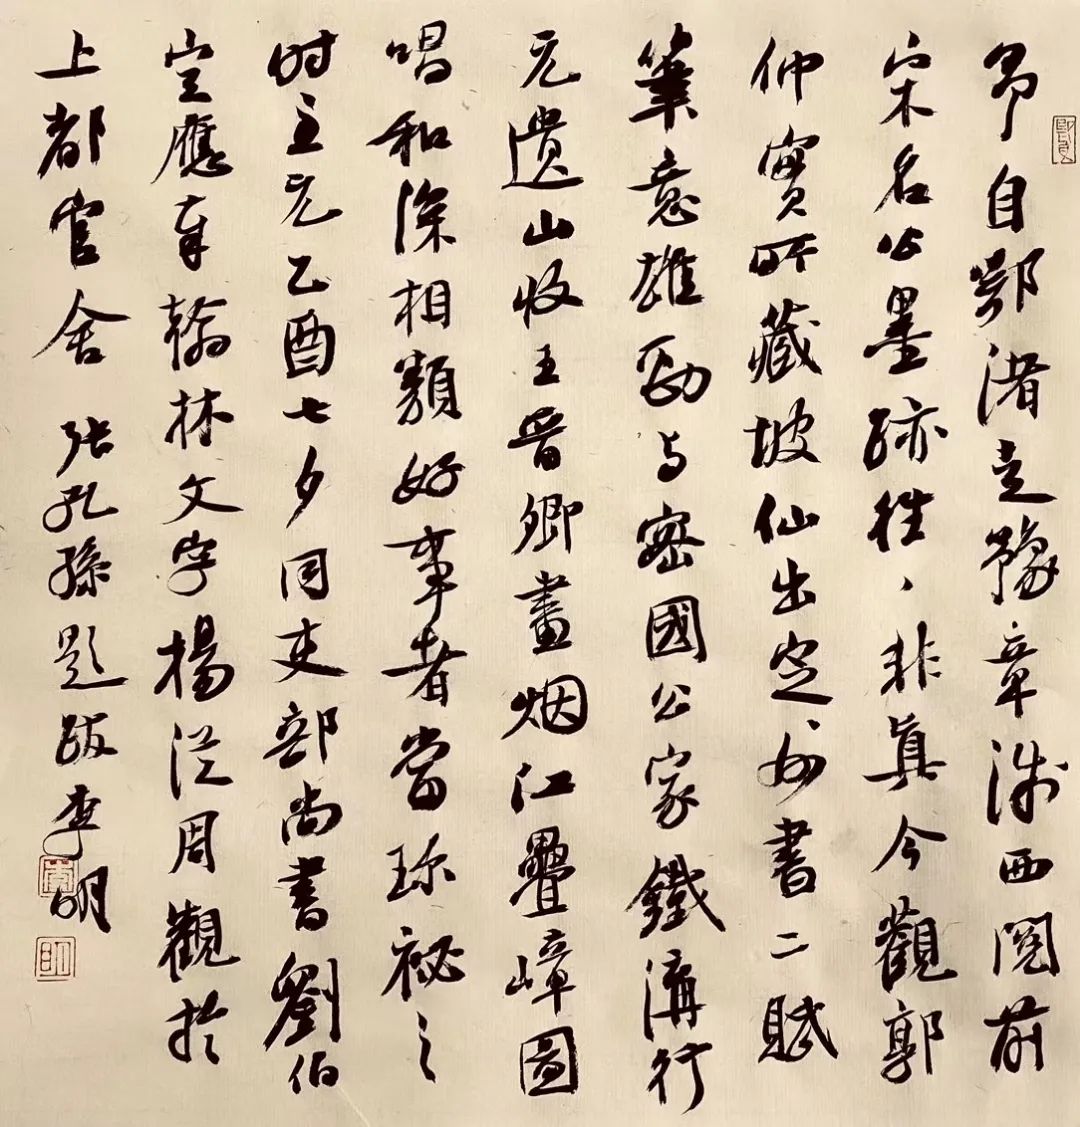 自鄂渚走豫章淛西閱前
宋名公墨跡往往非真今觀郭
仲實所藏坡仙出定州書二賦
筆意雄勁與密國公家鐵溝行
元遺山收王晉卿畫烟江疊嶂圖
唱和深相類好事者當珍祕之
時至元乙酉七夕同吏部尚書劉伯
宣應奉翰林文字楊從周觀於
上都官舍 張孔孫題跋 李明